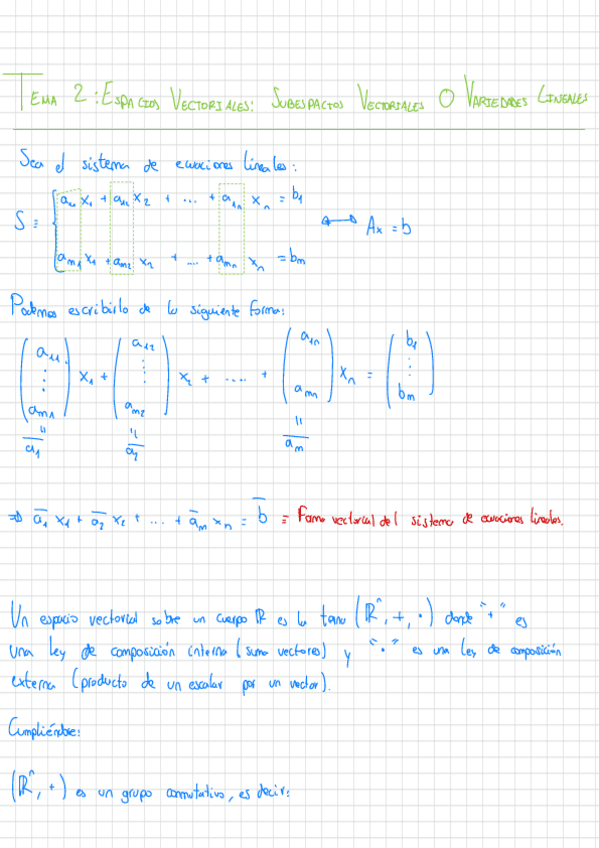 TEMA 2: ESPACIOS VECTORIALES: SUBESPACIOS VECTORIALES O VARIEDADES LINEALES
Sea el sistema de ecuaciones lineales:
S ≡ { a₁₁ x₁ + a₁₂ x₂ + ... + a₁ₙ xₙ = b₁
aₘ₁ x₁ + aₘ₂ x₂ + ... + aₘₙ xₙ = bₘ
⟷ Ax = b
Podemos escribirlo de la siguiente forma:
(a₁₁ ⋮ aₘ₁) x₁ + (a₁₂ ⋮ aₘ₂) x₂ + .... + (a₁ₙ aₘₙ) xₙ = (b₁ ⋮ bₘ)
= a̅₁ = a̅₂ = a̅ₘ
⇒ a̅₁ x₁ + a̅₂ x₂ + ... + a̅ₘ xₙ = b̅ ≡ Forma vectorial del sistema de ecuaciones lineales.
Un espacio vectorial sobre un cuerpo ℝ es la terna (ℝⁿ, +, ·) donde "+" es
una ley de composición interna (suma vectores) y "·" es una ley de composición
externa (producto de un escalar por un vector).
Cumpliéndose:
(ℝⁿ, +) es un grupo conmutativo, es decir: